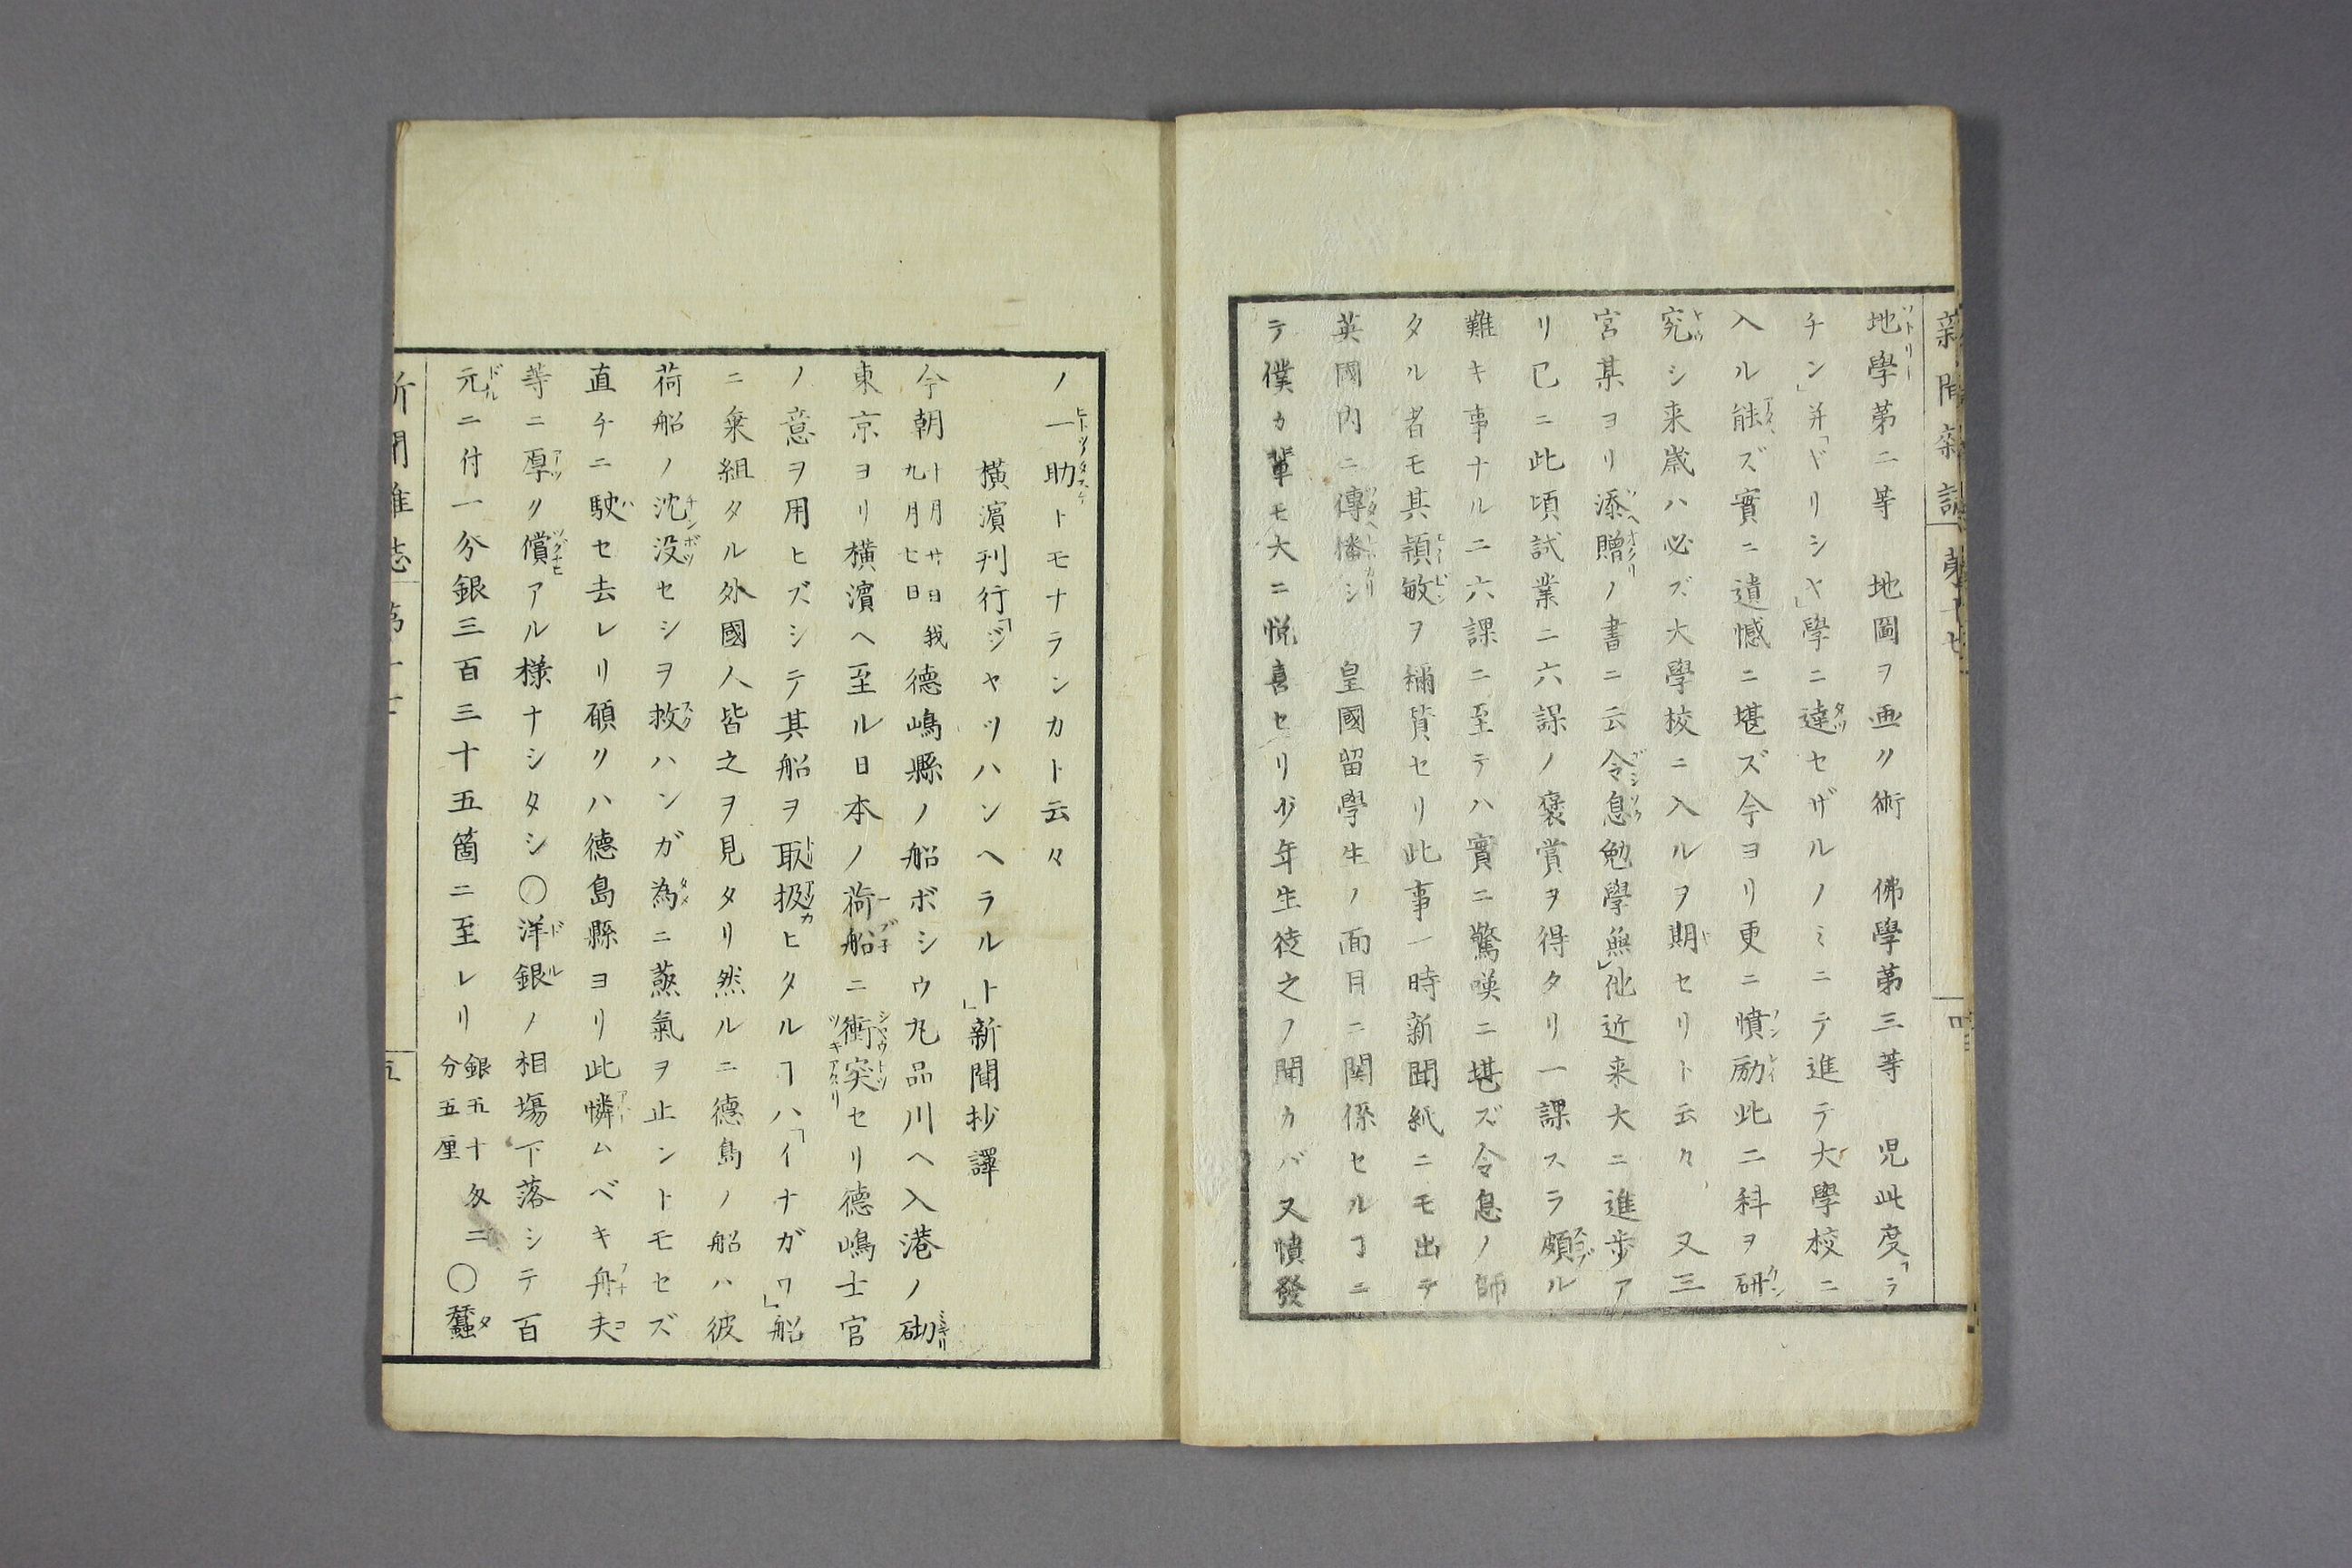 新聞雜誌 第十七 四
地學第二等 地圖ヲ画ク術 佛學第三等 児此度「ラ
チン」并「ドリシヤ」學ニ達セザルノミニテ進テ大學校ニ
入ル能ズ實ニ遺憾ニ堪ズ今ヨリ更ニ憤励此二科ヲ研
究シ来歳ハ必ズ大學校ニ入ルヲ期セリト云々 又三
宮某ヨリ添贈ノ書ニ云令息勉學無他近来大ニ進歩ア
リ已ニ此頃試業ニ六課ノ褒賞ヲ得タリ一課スラ頗ル
難キ事ナルニ六課ニ至テハ實ニ驚嘆ニ堪ズ令息ノ師
タル者モ其穎敏ヲ稱賛セリ此事一時新聞紙ニモ出テ
英國内ニ傳播シ 皇國留學生ノ面目ニ関係セルヿニ
テ僕カ輩モ大ニ悦喜セリ少年生徒之ヲ聞カバ又憤發
ノ一助トモナランカト云々
横濱刊行「ジヤツハンヘラルト」新聞抄譯
今朝十月廿日我九月七日德嶋縣ノ船ボシウ丸品川ヘ入港ノ砌
東京ヨリ横濱ヘ至ル日本ノ荷船ニ衝突セリ德嶋士官
ノ意ヲ用ヒズシテ其船ヲ取扱ヒタルヿハ「イナガワ」船
ニ乗組タル外國人皆之ヲ見タリ然ルニ德島ノ船ハ彼
荷船ノ沈没セシヲ救ハンガ為ニ蒸氣ヲ止ントモセズ
直チニ駛セ去レリ願クハ德島縣ヨリ此憐ムベキ舟夫
等ニ厚ク償アル様ナシタシ〇洋銀ノ相場下落シテ百
元ニ付一分銀三百三十五箇ニ至レリ銀五十匁二分五厘〇蠶
新聞雜誌 第十七 五